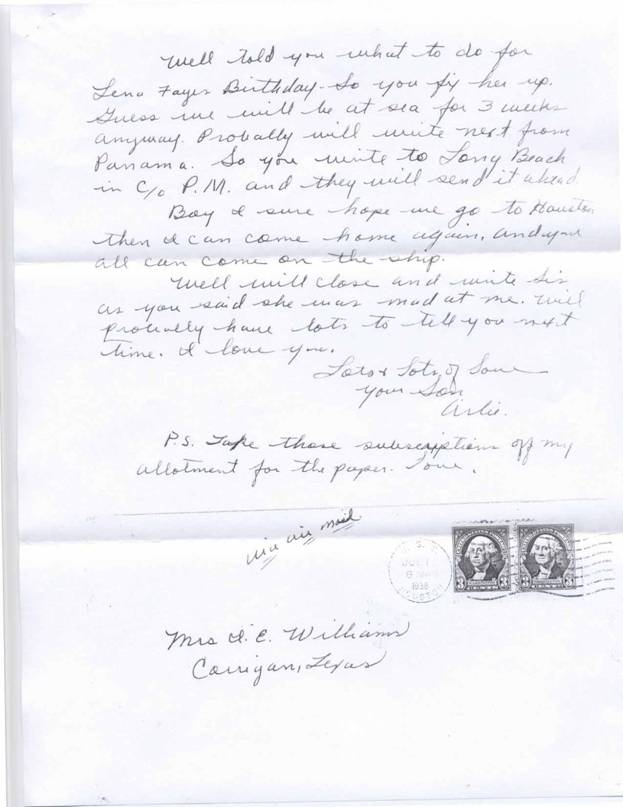 Well told you what to do for
Lena Fayes Birthday. So you fix her up.
Guess we will be at sea for 3 weeks
anyway. Probally will write next from
Panama. So you write to Long Beach
in c/o P.M. and they will send it ahead.
Boy I sure hope we go to Houston
then I can come home again, and you
all can come on the ship.
Well will close and write Sis
as you said she was mad at me. Will
probally have lots to tell you next
time. I love you.
Lots & Lots of Love
Your Son
Arlie.
P.S. Take those subscriptions off my
allotment for the paper. Love.
via air mail
U. S. S.
HOUSTON
3 3 3 3
Mrs I. E. Williams
Corrigan, Texas